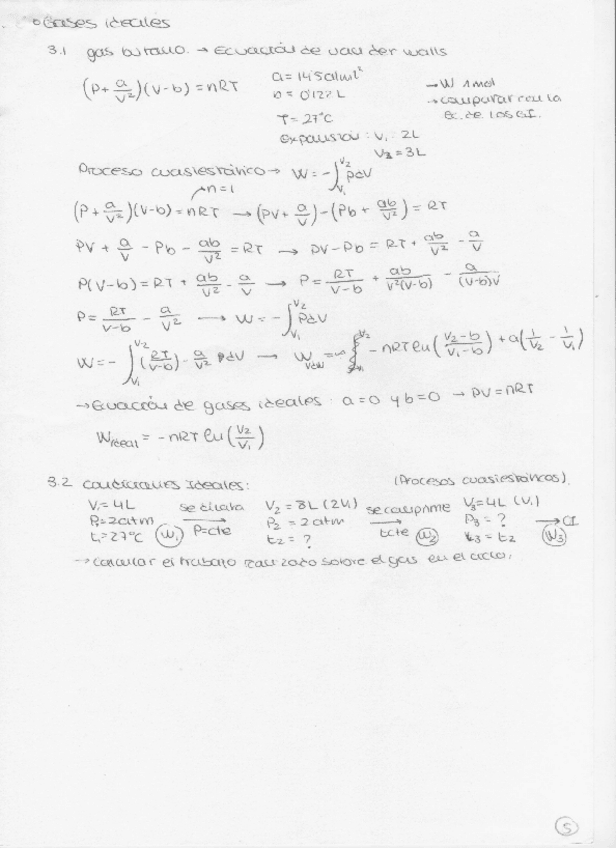 ° Gases ideales
3.1 gas butano. → Ecuación de van der walls
(P + a/V²)(V-b) = nRT
a = 14'5 atm l²
b = 0'122 L
T = 27°C
expansión: V₁ = 2L
V₂ = 3L
→ W 1mol
→ comparar con la
Ec. de los G.I.
Proceso cuasiestático → W = -∫ᵥ₁ⱽ² PdV
n=1
(P + a/V²)(V-b) = nRT → (PV + a/V) - (Pb + ab/V²) = RT
PV + a/V - Pb - ab/V² = RT → PV - Pb = RT + ab/V² - a/V
P(V-b) = RT + ab/V² - a/V → P = RT/(V-b) + ab/(V²(V-b)) - a/((V-b)V)
P = RT/(V-b) - a/V² → W = -∫ᵥ₁ⱽ² PdV
W = -∫ᵥ₁ⱽ² (RT/(V-b)) - a/V² dV → W_vdW = -nRT ln((V₂-b)/(V₁-b)) + a(1/V₂ - 1/V₁)
→ Ecuación de gases ideales: a=0 y b=0 → PV = nRT
W ideal = -nRT ln(V₂/V₁)
3.2 Condiciones Ideales: (Procesos cuasiestáticos).
V₁ = 4L se dilata V₂ = 8L (2V₁) se comprime V₃ = 4L (V₁)
P₁ = 2atm → P=cte P₂ = 2atm → tcte P₃ = ? → CI
t₁ = 27°C (W₁) t₂ = ? (W₂) t₃ = t₂ (W₃)
→ Calcular el trabajo realizado sobre el gas en el ciclo.
5